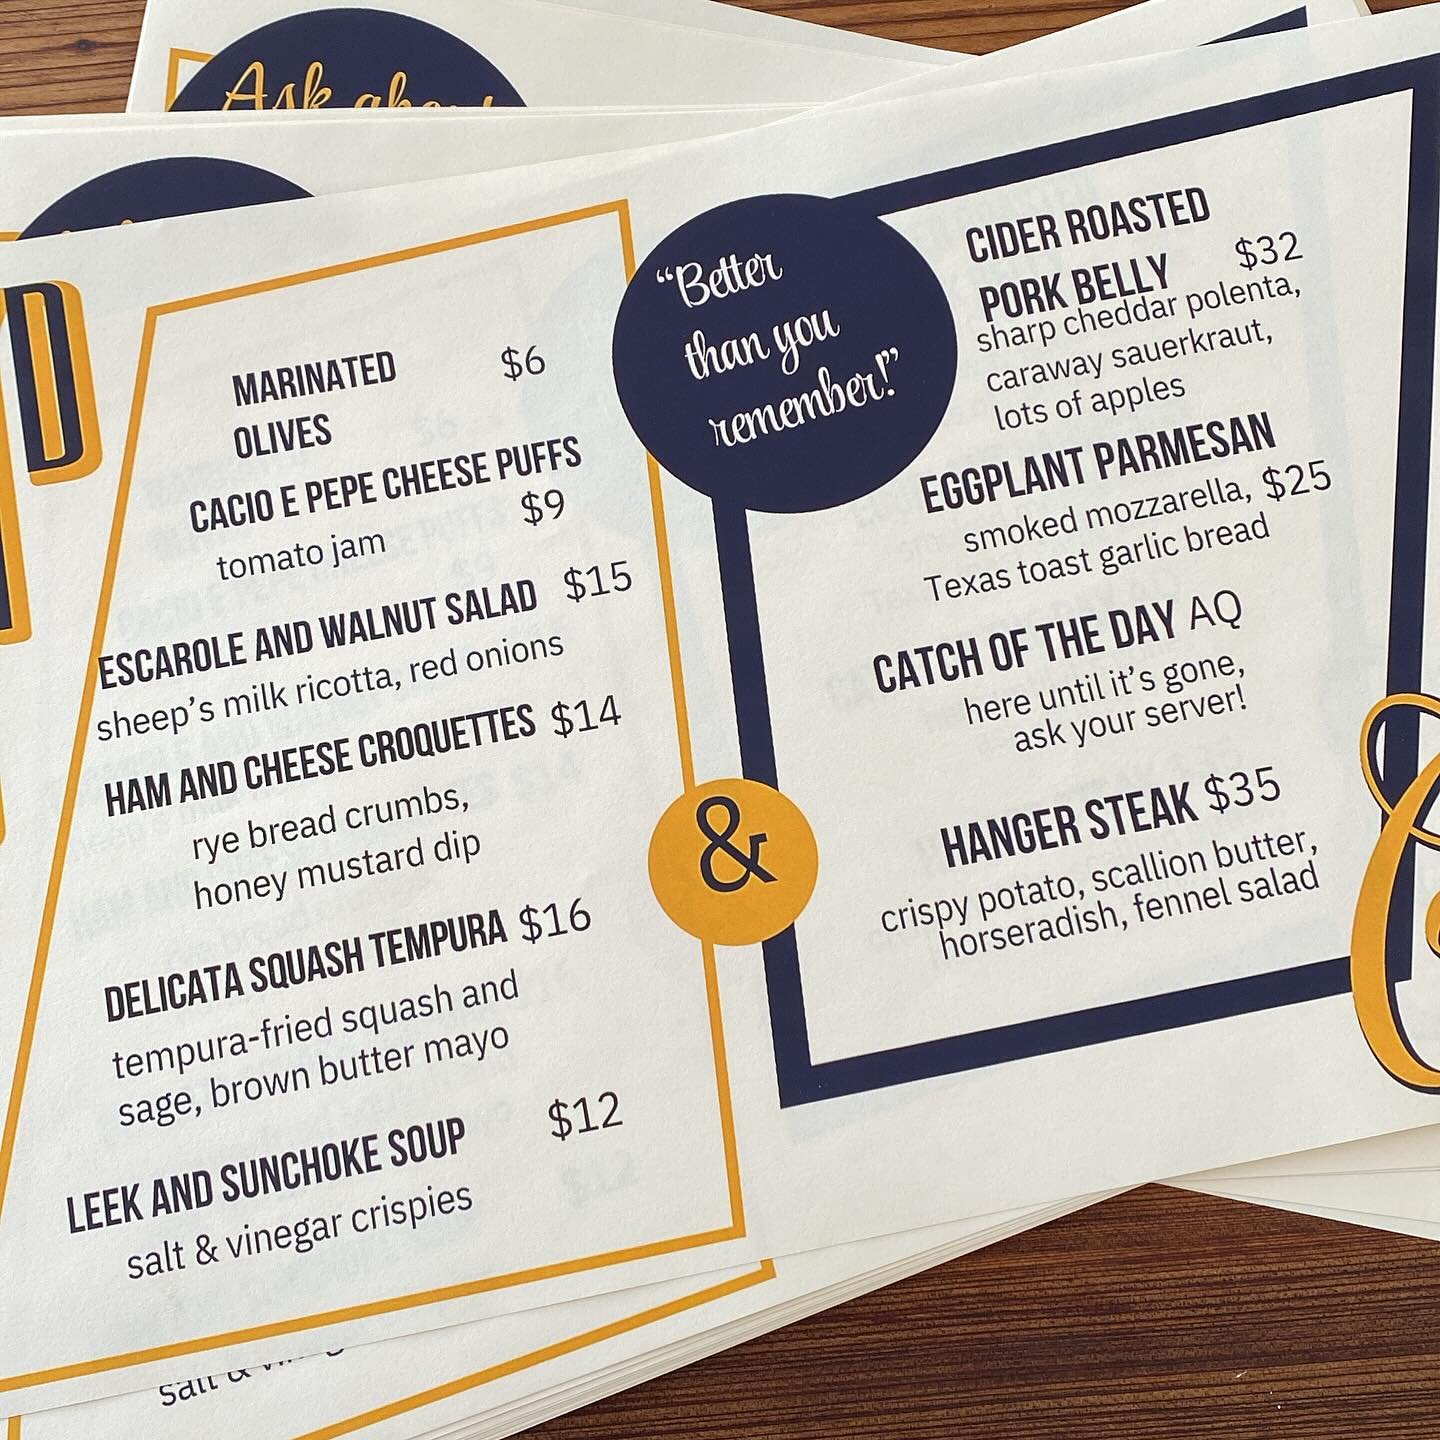 Ask about
D
MARINATED $6
OLIVES
CACIO E PEPE CHEESE PUFFS
$9
tomato jam
ESCAROLE AND WALNUT SALAD $15
sheep's milk ricotta, red onions
HAM AND CHEESE CROQUETTES $14
rye bread crumbs,
honey mustard dip
DELICATA SQUASH TEMPURA $16
tempura-fried squash and
sage, brown butter mayo
LEEK AND SUNCHOKE SOUP $12
salt & vinegar crispies
salt &
“Better
than you
remember!”
&
CIDER ROASTED
PORK BELLY $32
sharp cheddar polenta,
caraway sauerkraut,
lots of apples
EGGPLANT PARMESAN
smoked mozzarella, $25
Texas toast garlic bread
CATCH OF THE DAY AQ
here until it's gone,
ask your server!
HANGER STEAK $35
crispy potato, scallion butter,
horseradish, fennel salad